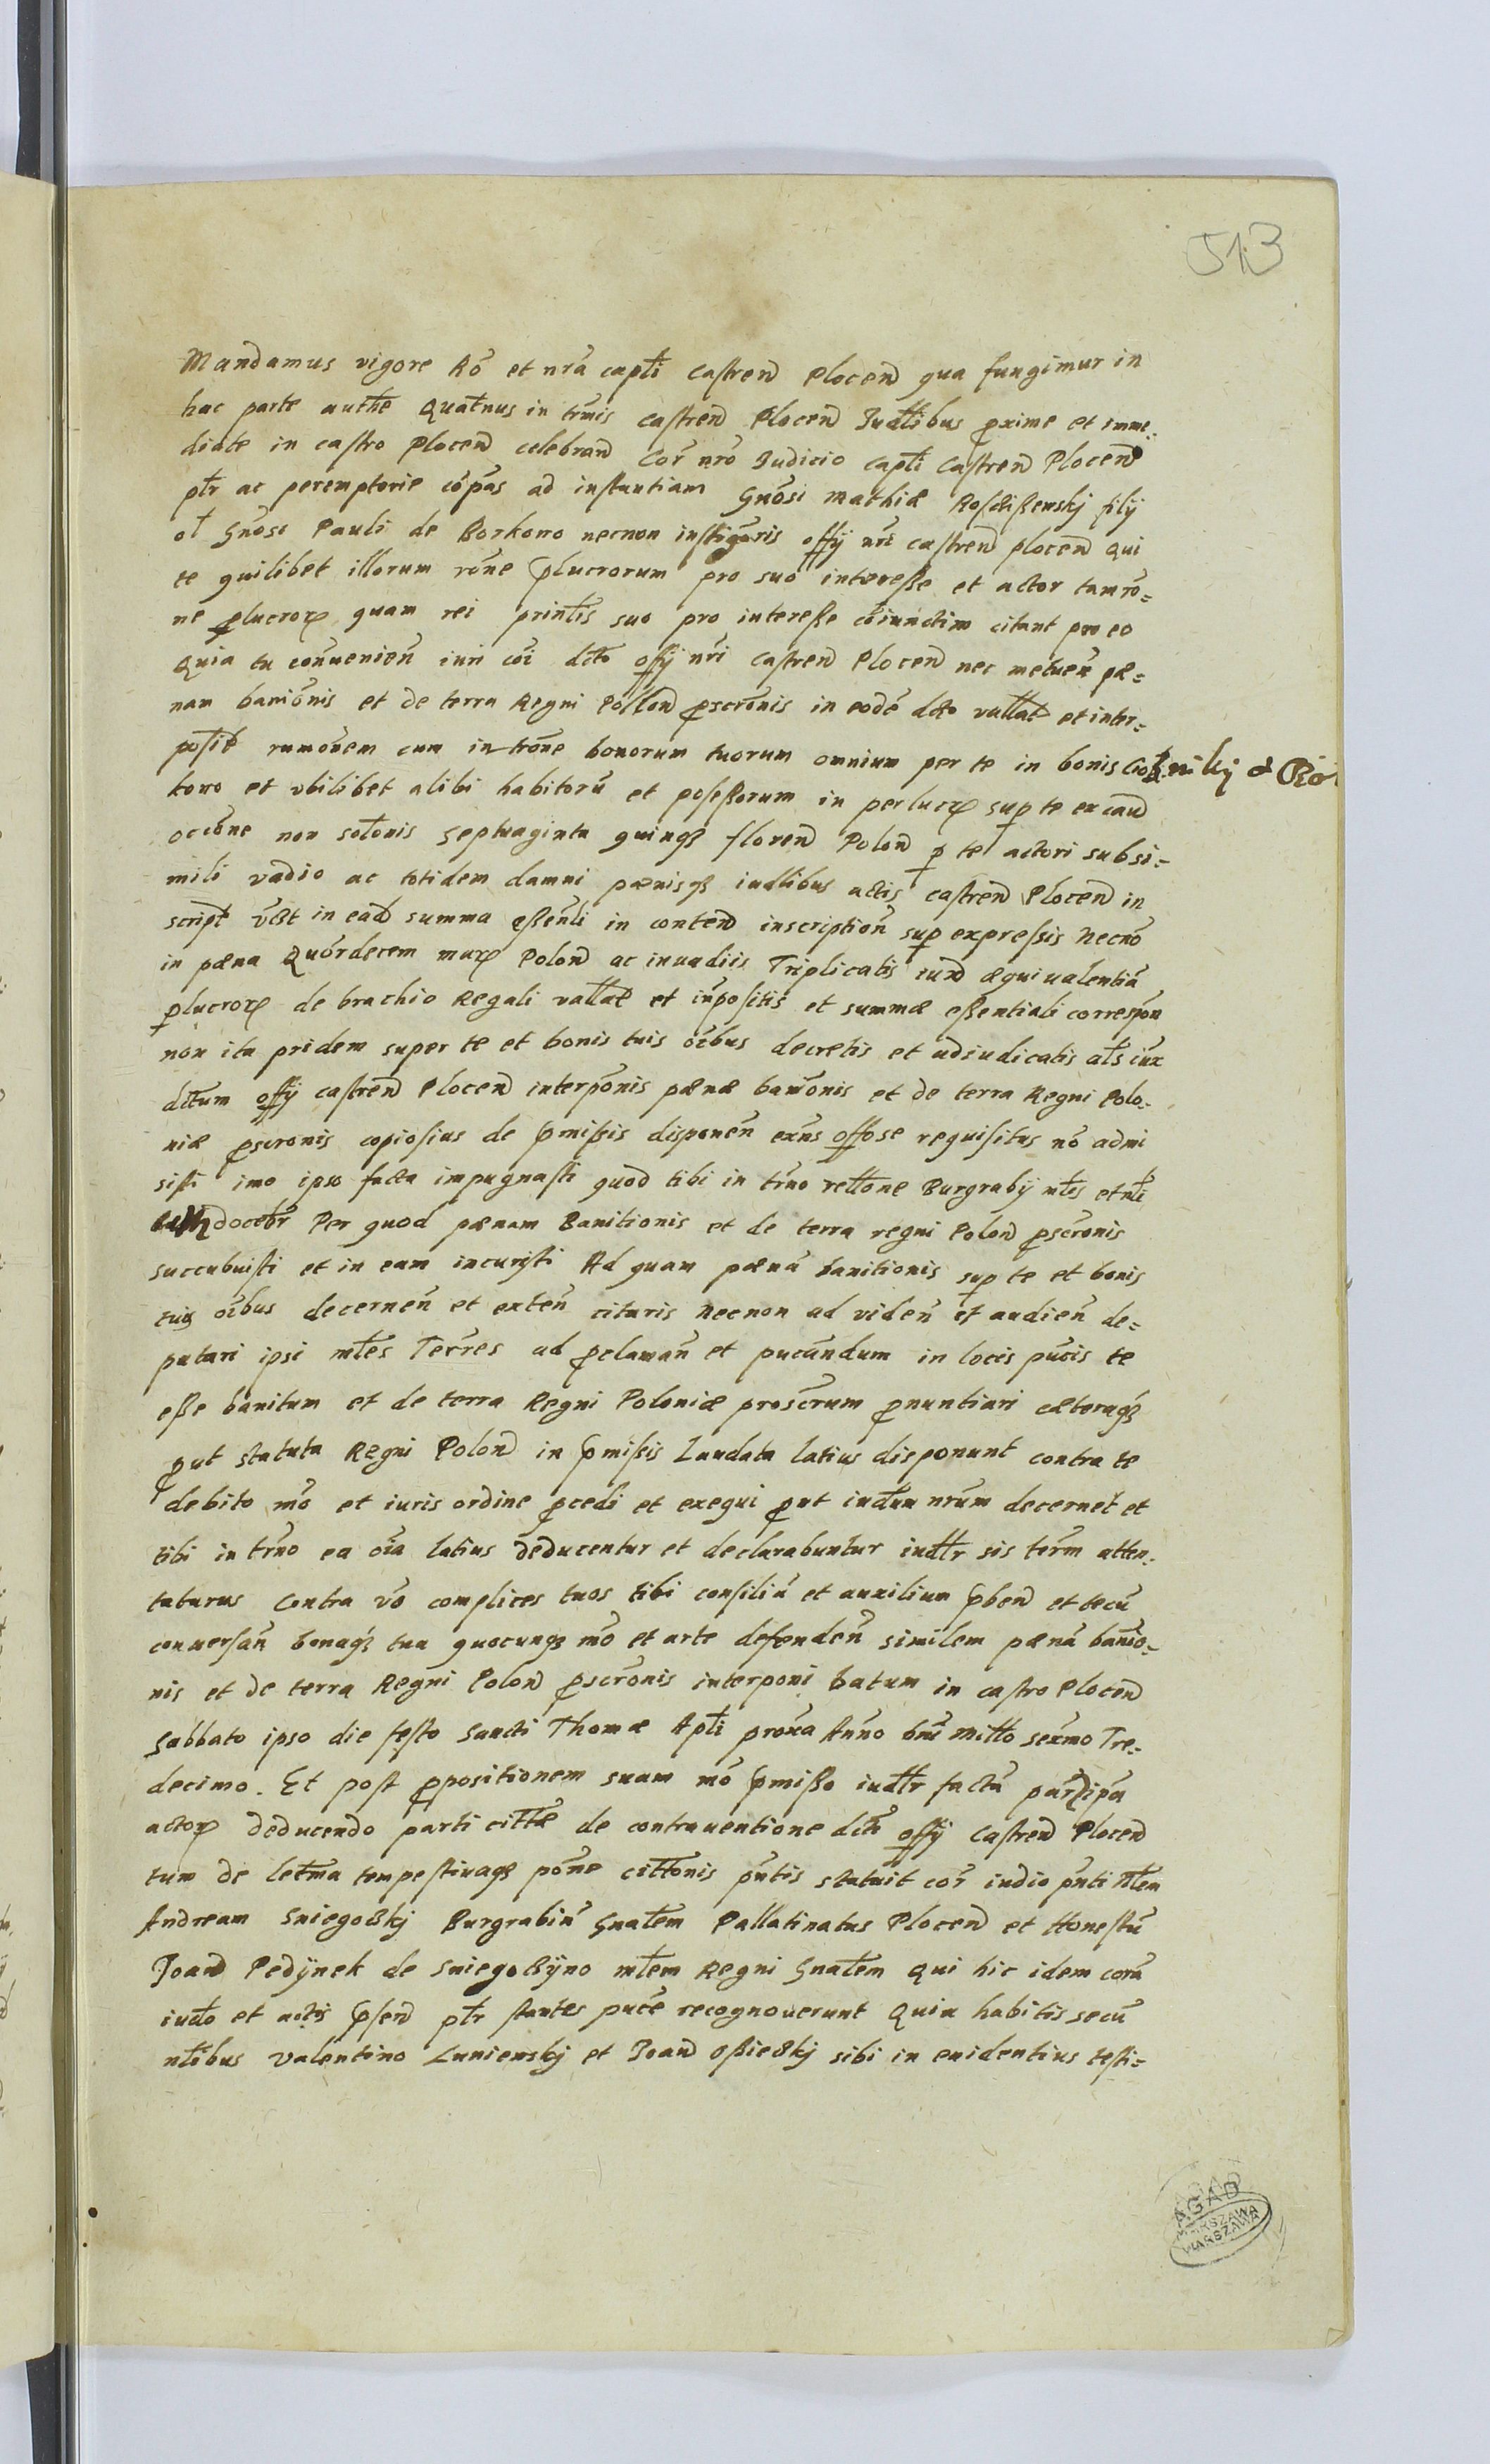 513
Mandamus vigore Rō et nrā capłi Castreñ Ploceñ qua fungimur in
hac parte authē Quat̄nus in trm̄is Castreñ Ploceñ Judłibus proxime et imme=
diate in castro Ploceñ celebrañ Corā nr̄o Judicio capłi Castreñ Ploceñ
ptr̄ ac peremptorie cōpās ad instantiam Gnōsi Mathiæ filij
ol Gnōsi Pauli de Borkowo necnon instigōris offij nr̄i castreñ ploceñ qui
te quilibet illorum rōne plucrorum pro suo interesse et actor tam rō=
ne plucror quam rei prinłis suo pro interesse cōiunctim citant pro eo
Quia tu conuenieñ iuri cōi dcto offij nr̄i Castreñ Ploceñ nec metueñ pæ=
nam baniōnis et de terra Regni Poloñ pscrōnis in eodē dcto vallat et inter=
posit rumōnem cum intrōne bonorum tuorum omnium per te in bonis
kowo et vbilibet alibi habitorū et possessorum in perlucr sup te ex cauā
occōne non solōnis septuaginta quinqȝ floreñ Poloñ p te actori sub si=
mili vadio ac totidem damni pænisqȝ iudłibus actis castreñ Ploceñ in
script vt in eād summa essēnli in conteñ inscriptioñ sup expressis Necnō
in pæna Quōrdecem mar Poloñ ac in vadiis Triplicatis iuxā æquiualentiā
plucror de brachio Regali vallat et inpositis et summæ essentiali correspoñ
non ita pridem super te et bonis tuis oībus decretis et adiudicatis ałs iux
dctum offij castreñ Ploceñ interpōnis pænæ baniōnis et de terra Regni Polo=
niæ pscrōnis copiosius de pmissis disponeñ exn̄s offōse requisitus nō admi
sisti imo ipso facto impugnasti quod tibi in trm̄o rełłone Burgrabij młis et nłi
docebr̄ Per quod pænam Banitionis et de terra regni Poloñ pscrōnis
succubuisti et in eam incuristi Ad quam pænā banitionis sup te et bonis
tuis oībus decerneñ et exteñ citaris Necnon ad videñ et audieñ de=
putari ipsi młes Terr̄es ad pclamañ et pucāndum in locis pucīs te
esse banitum et de terra Regni Poloniæ proscrūm pnuntiari cæteraqȝ
put statuta Regni Poloñ in pmissis Laudata latius disponunt contra te
debito mō et iuris ordine pcedi et exequi put iudūm nr̄um decernet et
tibi in trm̄o ea oīa latius deducentur et declarabuntur iudłr sis term̄ atten=
taturus Contra vō complices tuos tibi consiliū et auxilium pbeñ et tecū
conuersañ bonaqȝ tua quocunqȝ mō et arte defendeñ similem pænā baniō=
nis et de terra Regni Poloñ pscrōnis interponi Datum in castro Ploceñ
Sabbato ipso die festo Sancti Thomæ Apłi proxā Anno Dnī Miłło sexmō Tre=
decimo. Et post ppositionem suam mō pmisso iudłr factā
actor deducendo parti cittæ de contrauentione dcti offij Castreñ Ploceñ
tum de letm̄a tempestivaqȝ pōne cittōnis pn̄tis statuit corā iudio pn̄ti Młem
Andream Sniegoßkj Burgrabiū Gnałem Pallatinatus Ploceñ et Honestū
Joañ Pedÿnek de Sniegoßÿno młem Regni Gnałem Qui hic idem corā
iudo et actis pseñ ptr̄ stantes pucē recognoverunt Quia habitis secū
nłibus Valentino Luniewskj et Joañ Oßießkj sibi in euidentius testi=
AGAD
WARSZAWA